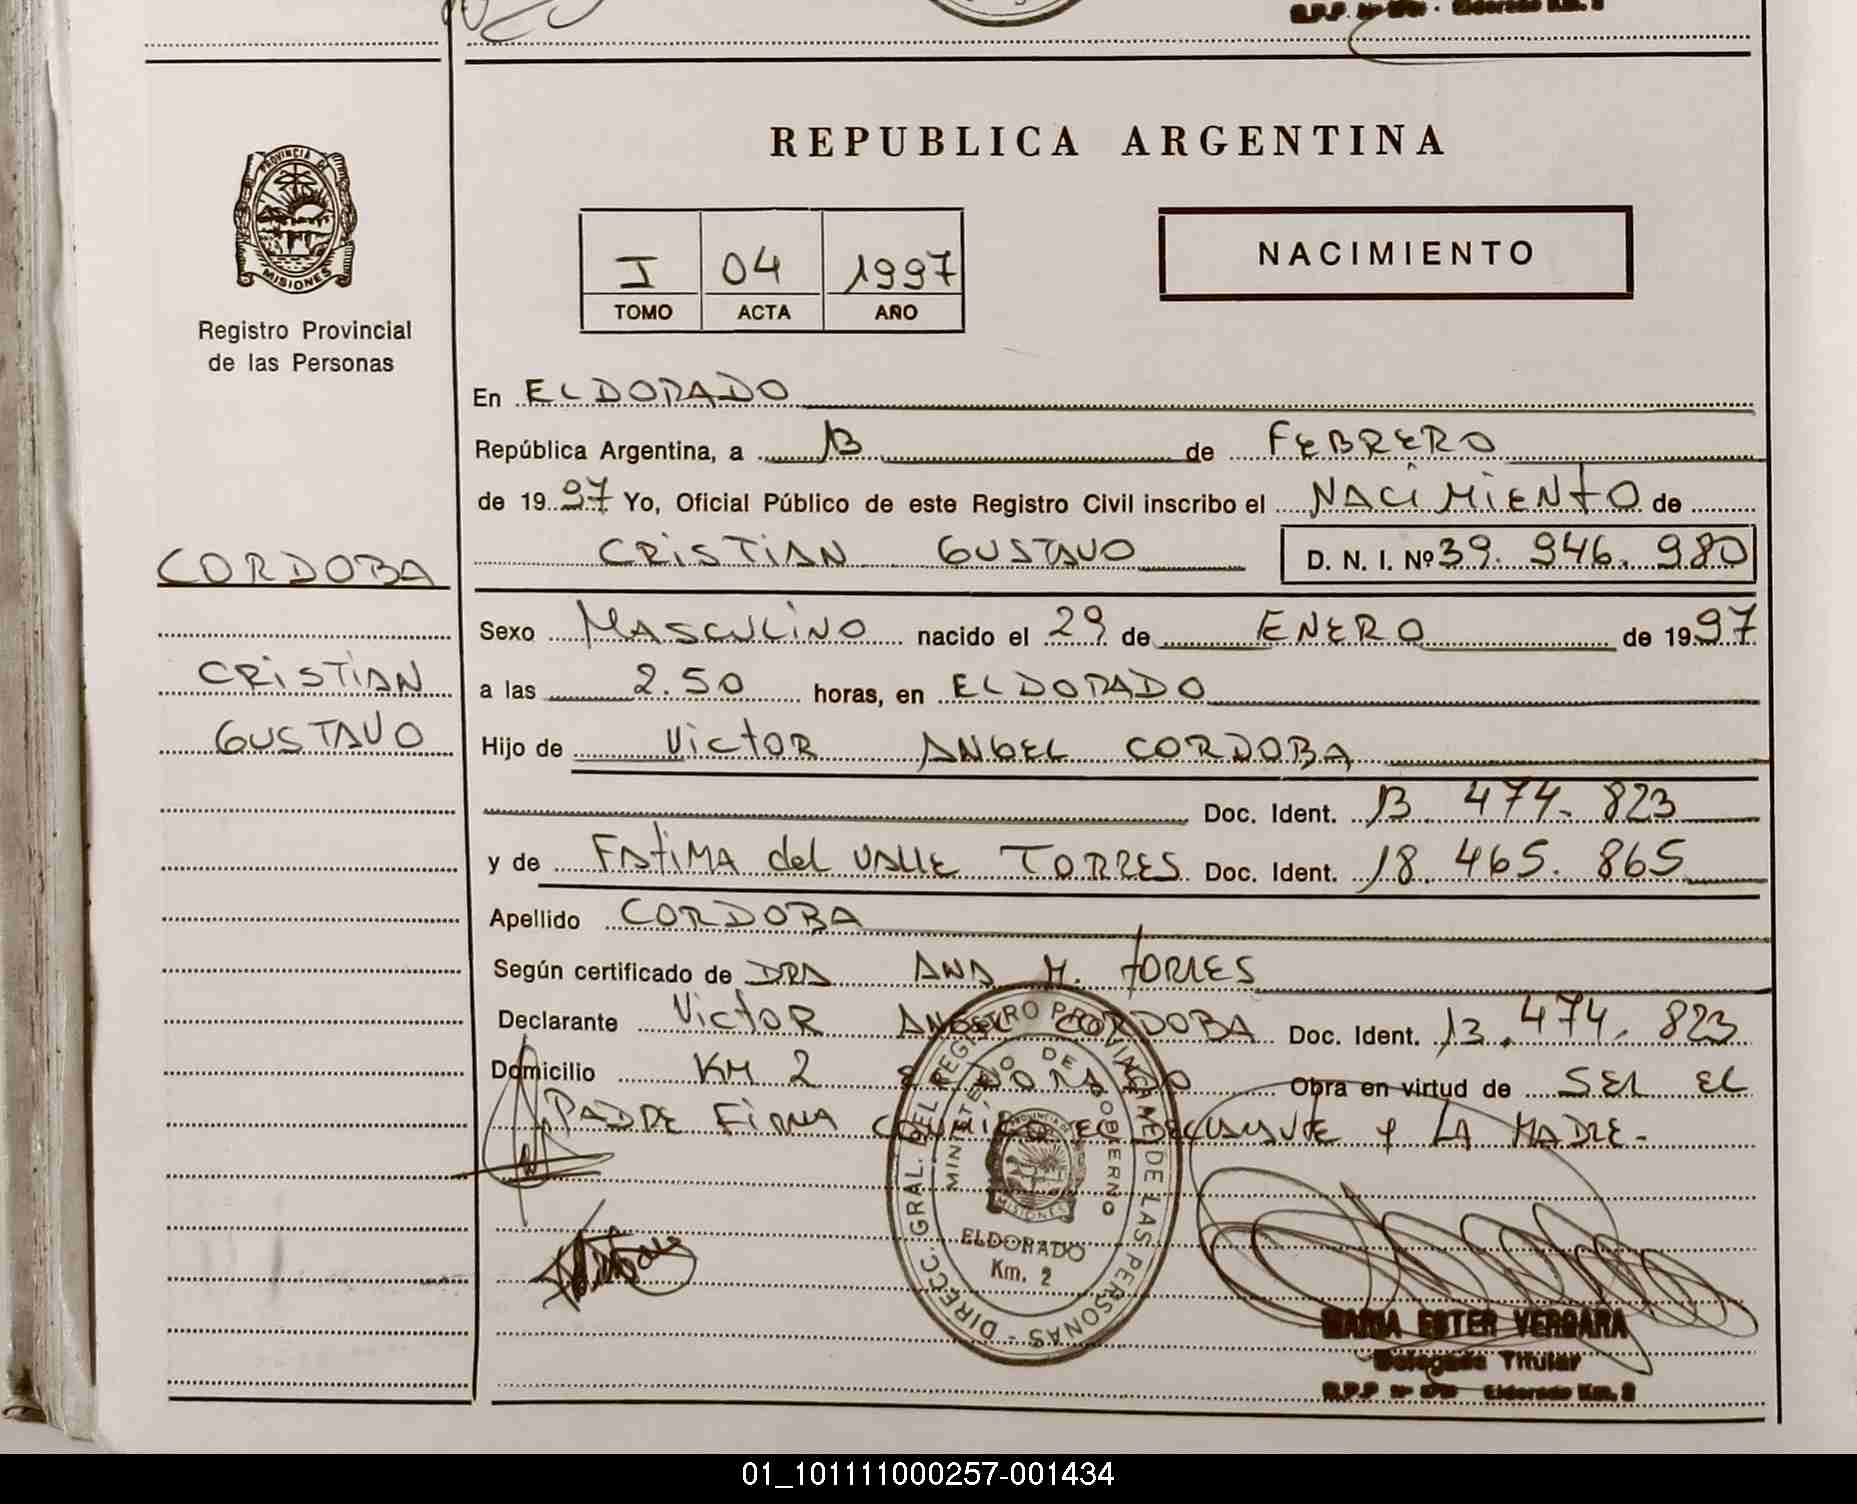 PROVINCIA DE
MISIONES
Registro Provincial
de las Personas
CORDOBA
CRISTIAN
GUSTAVO
REPUBLICA ARGENTINA
I 04 1997
TOMO ACTA AÑO
NACIMIENTO
En ELDORADO
República Argentina, a 13 de FEBRERO
de 1997 Yo, Oficial Público de este Registro Civil inscribo el NACIMIENTO de
CRISTIAN GUSTAVO D. N. I. Nº 39.946.980
Sexo MASCULINO nacido el 29 de ENERO de 1997
a las 2.50 horas, en ELDORADO
Hijo de VICTOR ANGEL CORDOBA
Doc. Ident. 13.474.823
y de FATIMA del VALLE TORRES Doc. Ident. 18.465.865
Apellido CORDOBA
Según certificado de DRA ANA M. TORRES
Declarante VICTOR ANGEL CORDOBA Doc. Ident. 13.474.823
Domicilio KM 2 ELDORADO Obra en virtud de SER EL
PADRE FIRMA CONMIGO EL DECLARANTE Y LA MADRE.-
DIRECC. GRAL. DEL REGISTRO PROVINCIAL DE LAS PERSONAS -
MINISTERIO DE GOBIERNO
PROVINCIA DE
MISIONES
ELDORADO
Km. 2
MARIA ESTER VERGARA
Delegada Titular
R.P.P Nº Eldorado Km. 2
01_101111000257-001434